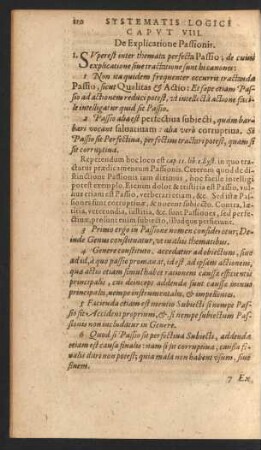 110 SYSTEMATIS LOGICI
CAPVT VIII.
De Explicatione Passionis.
1. SVperest inter themata perfecta Passio; de cuius
explicatione sine tractatione sunt hi canones:
1 Non ita quidem frequenter occurrit tractanda
Passio, sicut Qualitas & Actio: Et sæpe etiam Pas-
sio ad actionem reduci potest, ut intellecta actione faci-
le intelligatur quid sit Passio.
2 Passio alia est perfectiva subiecti, quàm bar-
bari vocant salvativam: alia verò corruptiva. Si
Passio sit Perfectiva, perfectius tractari potest, quàm si
sit corruptiva.
Repetendum hoc loco est cap. lib. 1. Syst. in quo tra-
ctatur prædicamentum Passionis. Cæterùm quod de di-
stinctione Passionis iam diximus, hoc facilè intelligi
potest exemplo. Etenim dolor & tristitia est Passio, vul-
nus etiam est Passio, verberatio etiam, &c. Sed istæ Pas-
siones sunt corruptivæ, & nocent subiecto. Contrà, læ-
titia, verecundia, iustitia, &c. sunt Passiones, sed perfi-
ciunt, premiunt enim subiecto, illudque perficiunt.
3 Primò ergo in Passione nomen consideretur; De-
inde Genus constituatur, ut in aliis thematibus.
4 Genere constituto, accedatur ad subiectum, sive
ad id, à quo passio promanat, id est ad ipsam actionem,
qua actio etiam simul habet rationem causæ efficientis
principalis, cui deinceps addenda sunt causæ minus
principales, nempe instrumentalis, & impellentes.
5 Facienda etiam est mentio Subiecti si nempe Pas-
sio sit Accidens proprium, & si nempe subiectum Pas-
sionis non includatur in Genere.
6 Quod si Passio sit perfectiva Subiecti, addenda
etiam est causa finalis: etiam si sit corruptiva, causa fi-
nalis dari non potest; quia mala non habent usum, sive
finem.
7 Ex